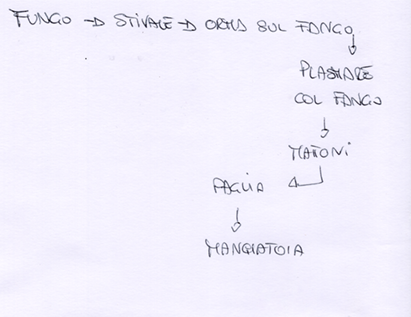 FUNGO → STIVALE → ORMA SUL FANGO
PLASMARE
COL FANGO
MATONI
PAGLIA
MANGIATOIA